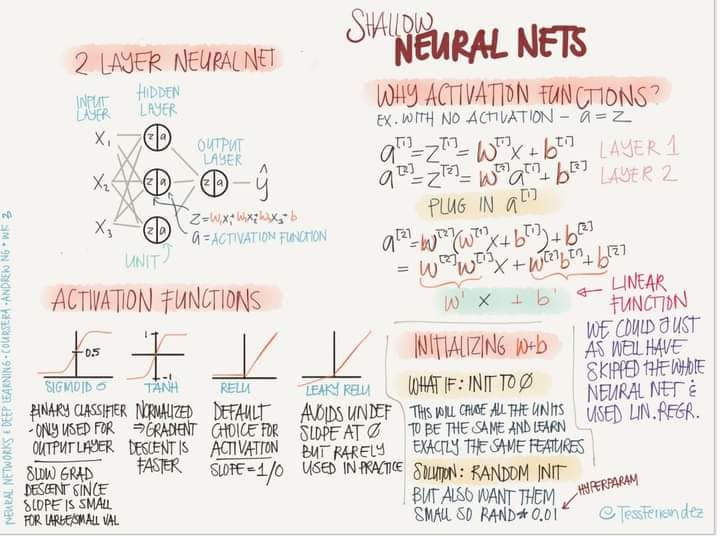 SHALLOW
NEURAL NETS
2 LAYER NEURAL NET
INPUT LAYER
HIDDEN LAYER
OUTPUT LAYER
X₁
X₂
X₃
z|a
z|a
z|a
z|a
ŷ
Z=W₁X₁+W₂X₂+W₃X₃+b
a=ACTIVATION FUNCTION
UNIT
ACTIVATION FUNCTIONS
0.5
SIGMOID σ
BINARY CLASSIFIER
-ONLY USED FOR
OUTPUT LAYER
SLOW GRAD
DESCENT SINCE
SLOPE IS SMALL
FOR LARGE/SMALL VAL
1
-1
TANH
NORMALIZED
⇒ GRADIENT
DESCENT IS
FASTER
RELU
DEFAULT
CHOICE FOR
ACTIVATION
SLOPE=1/0
LEAKY RELU
AVOIDS UNDEF
SLOPE AT 0
BUT RARELY
USED IN PRACTICE
WHY ACTIVATION FUNCTIONS?
EX. WITH NO ACTIVATION - a = z
a[1]=z[1]= W[1]x + b[1] LAYER 1
a[2]=z[2]= W[2]a[1]+ b[2] LAYER 2
PLUG IN a[1]
a[2]=W[2](W[1]x+b[1])+b[2]
= W[2]W[1]x + W[2]b[1]+b[2]
W' x + b'
LINEAR
FUNCTION
WE COULD JUST
AS WELL HAVE
SKIPPED THE WHOLE
NEURAL NET &
USED LIN.REGR.
INITIALIZING W+b
WHAT IF: INIT TO 0
THIS WILL CAUSE ALL THE UNITS
TO BE THE SAME AND LEARN
EXACTLY THE SAME FEATURES
SOLUTION: RANDOM INIT
BUT ALSO WANT THEM
SMALL SO RAND * 0.01
HYPERPARAM
@TessFerrandez
NEURAL NETWORKS & DEEP LEARNING • COURSERA • ANDREW NG • WK 3